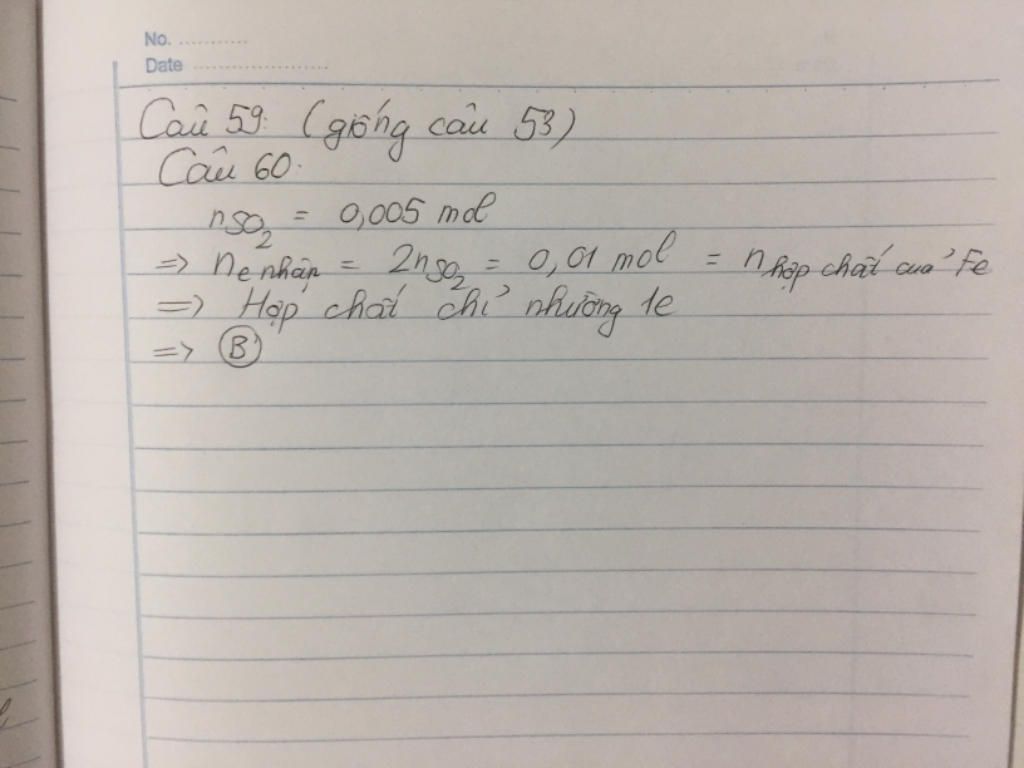 No. ...........
Date ......................
Câu 59: (giống câu 53)
Câu 60.
nSO2 = 0,005 mol
=> ne nhận = 2nSO2 = 0,01 mol = nhợp chất của Fe
=> Hợp chất chỉ nhường 1e
=> B